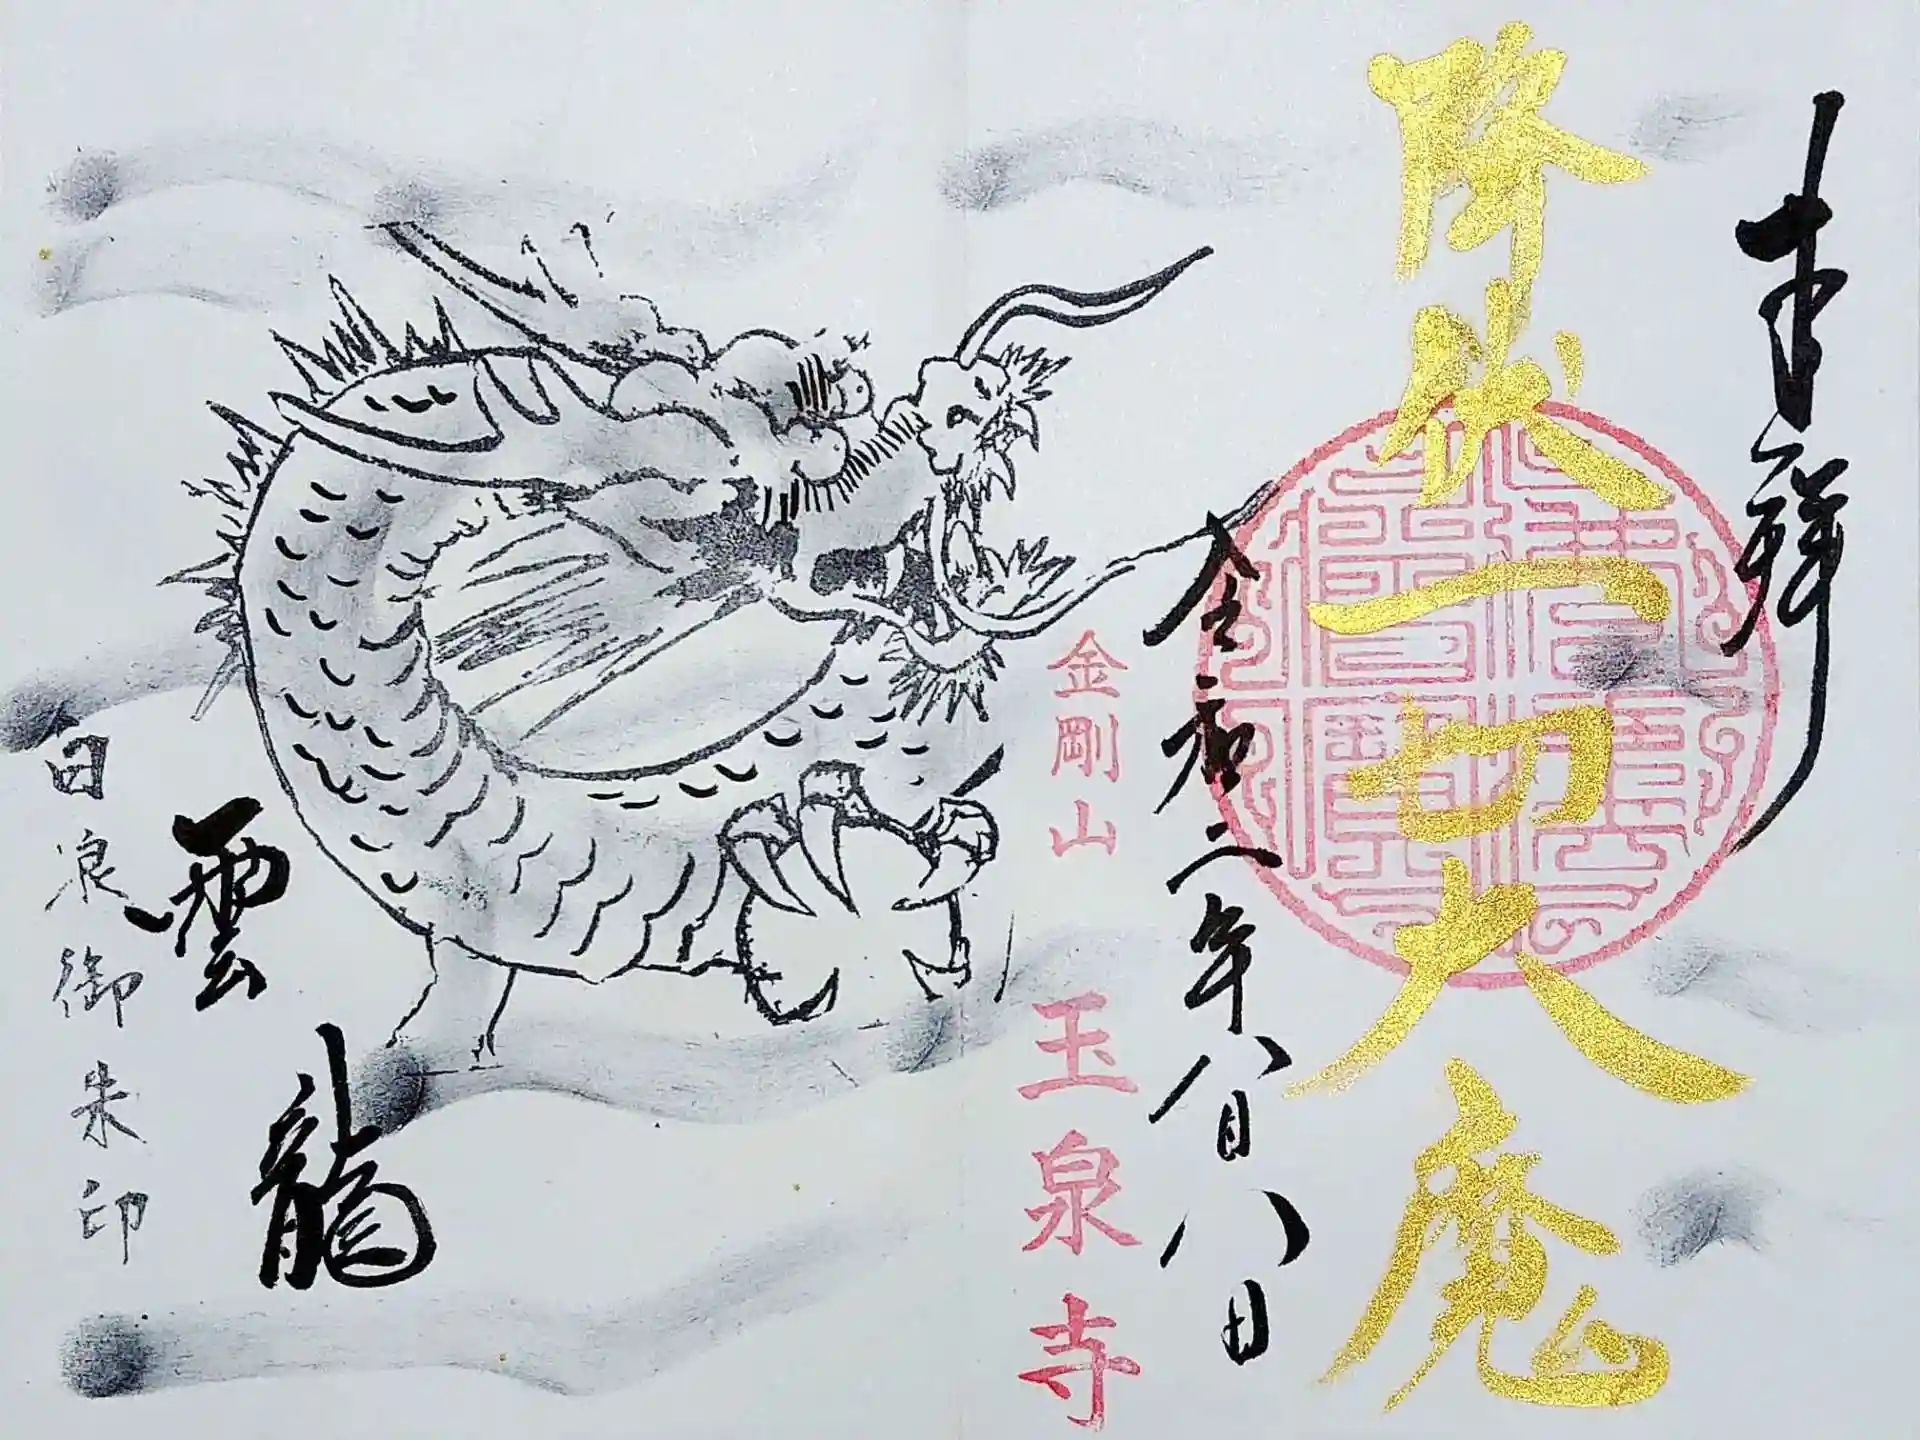 吉祥
降伏一切大魔
令和二年八月八日
金剛山 玉泉寺
雲龍
白浪御朱印